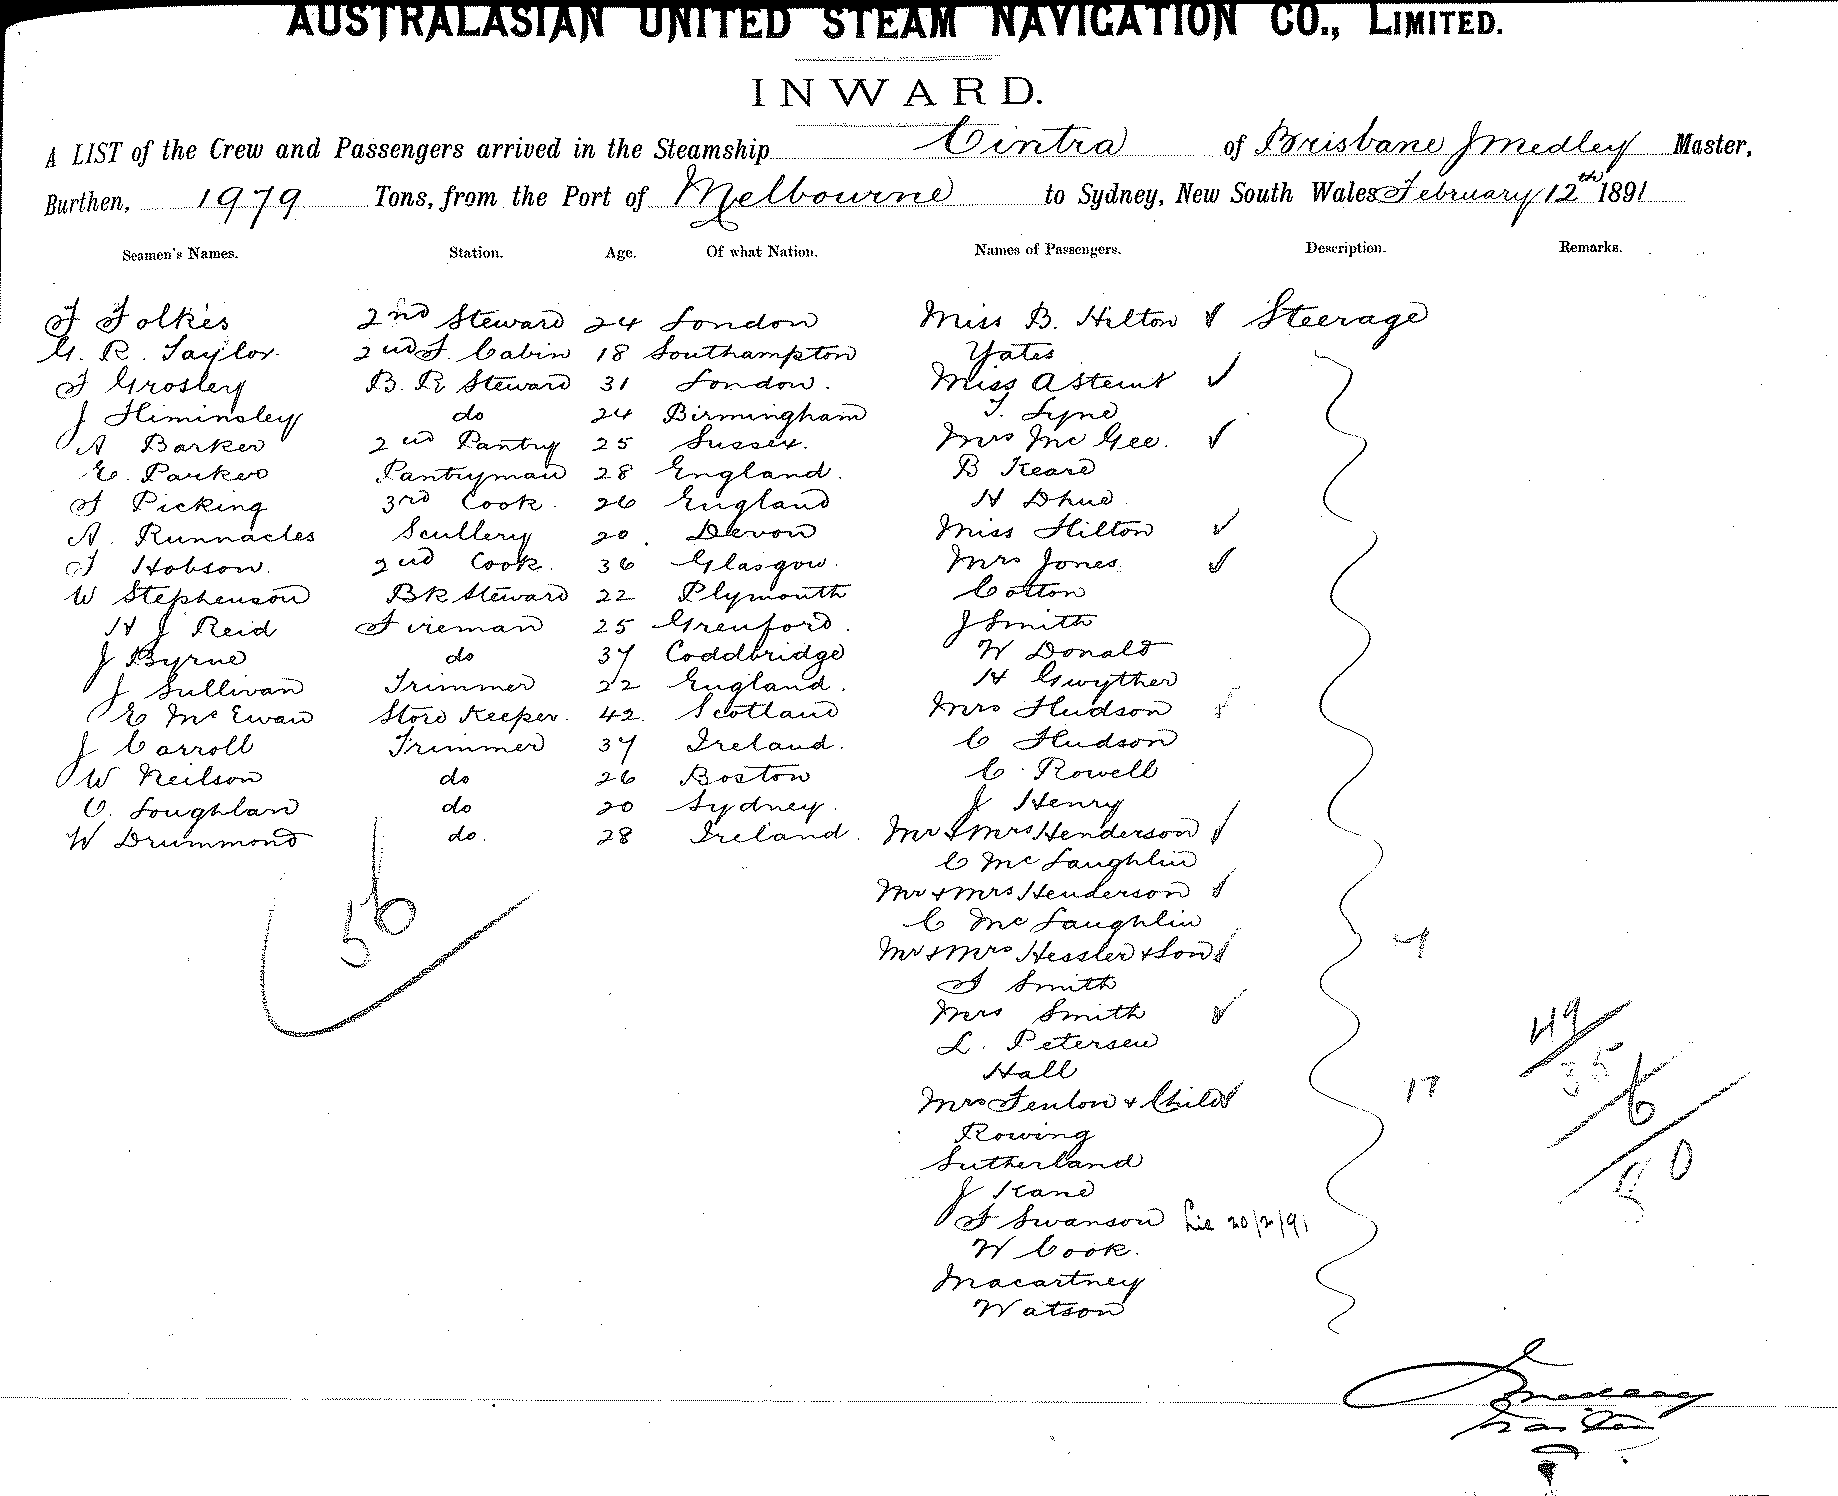 AUSTRALASIAN UNITED STEAM NAVIGATION CO., LIMITED.
INWARD.
A LIST of the Crew and Passengers arrived in the Steamship Cintra of Brisbane J Medley Master,
Burthen, 1979 Tons, from the Port of Melbourne to Sydney, New South Wales February 12th 1891
Seamen's Names. Station. Age. Of what Nation. Names of Passengers. Description. Remarks.
F Folkes 2nd Steward 24 London Miss B. Hilton Steerage
G. R. Taylor 2nd S. Cabin 18 Southampton Yates
F Grosley B. R Steward 31 London. Miss A
J Himinsley do 24 Birmingham T. Lyne
A Barker 2nd Pantry 25 Sussex. Mrs McGee.
E. Parker Pantryman 28 England. B Keare
F Picking 3rd Cook. 26 England H Dhue
A. Runnacles Scullery 20. Devon Miss Hilton
F Hobson. 2nd Cook. 36 Glasgow. Mrs Jones
W Stephenson Bk Steward 22 Plymouth Cotton
H J Reid Fireman 25 Grenford. J Smith
J Byrne do 37 Coddbridge W Donald
J Sullivan Trimmer 22 England. H Gwyther
E McEwan Store Keeper. 42 Scotland Mrs Hudson
J Carroll Trimmer 37 Ireland. C Hudson
W Neilson do 26 Boston C. Rowell
C. Loughlan do 20 Sydney. J Henry
W Drummond do. 28 Ireland. Mr & Mrs Henderson
C McLaughlin
Mr & Mrs Henderson
56 C McLaughlin
Mr & Mrs Hessler & Son
F Smith
Mrs Smith
L. Petersen
Hall
Mrs Fenlon & Child 17
Rowing
Sutherland
J Kane
F Swanson 20/2/91
W Cook.
Macartney
Watson
49
35
6
J Medley
Master